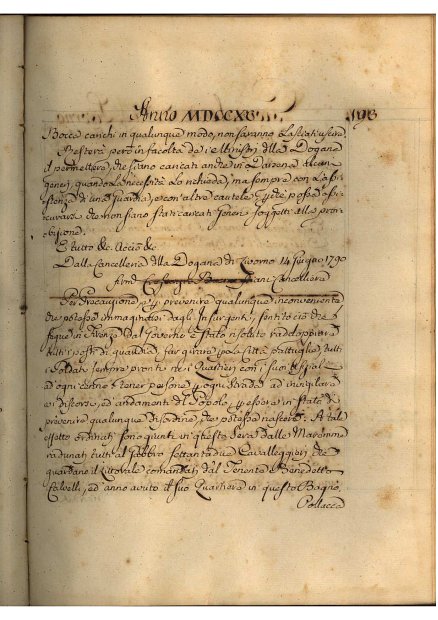 Anno MDCCXC. 193
Bocca carichi in qualunque modo, non saranno Lasciati uscire.
Resterà però in facoltà de i Ministri della Dogana
il permettere, che siano caricati anche in Darsena alcuni
generi, quando La necessità Lo richieda, ma sempre con L'assi
stenza di una Guardia, e con altre cautele, che possa assi
curare che non siano stati caricati Generi soggetti alla proi
bizione.
E tutto &c. Acciò &c.
Dalla Cancelleria della Dogana di Livorno 14 Giugno 1790
Cancelliere
Per Precauzione, e per prevenire qualunque inconveniente
che potesse immaginarsi dagli Insurgenti, sentito ciò che
segue in Firenze dal Governo è stato risoluto raddoppiare
tutti i posti di guardia, far girare per la Città pattuglie, tutti
i Soldati sempre pronti ne i Quartieri con i suoi Ufizali
ad ogni cenno, e tener persone per ogni strada ad invigilare
ai discorsi, ed andamenti del Popolo, per essere in stato di
prevenire qualunque disordine, che potesse nascere. A tale
effetto ordinati sono giunti in questa sera dalle Maremme
radunati tutti al Fabbro settantadue Cavalleggieri che
guardano il Littorale comandati dal Tenente Benedetto
Calvelli, ed anno avuto il suo Quartiere in questo Bagno.
Pollacca